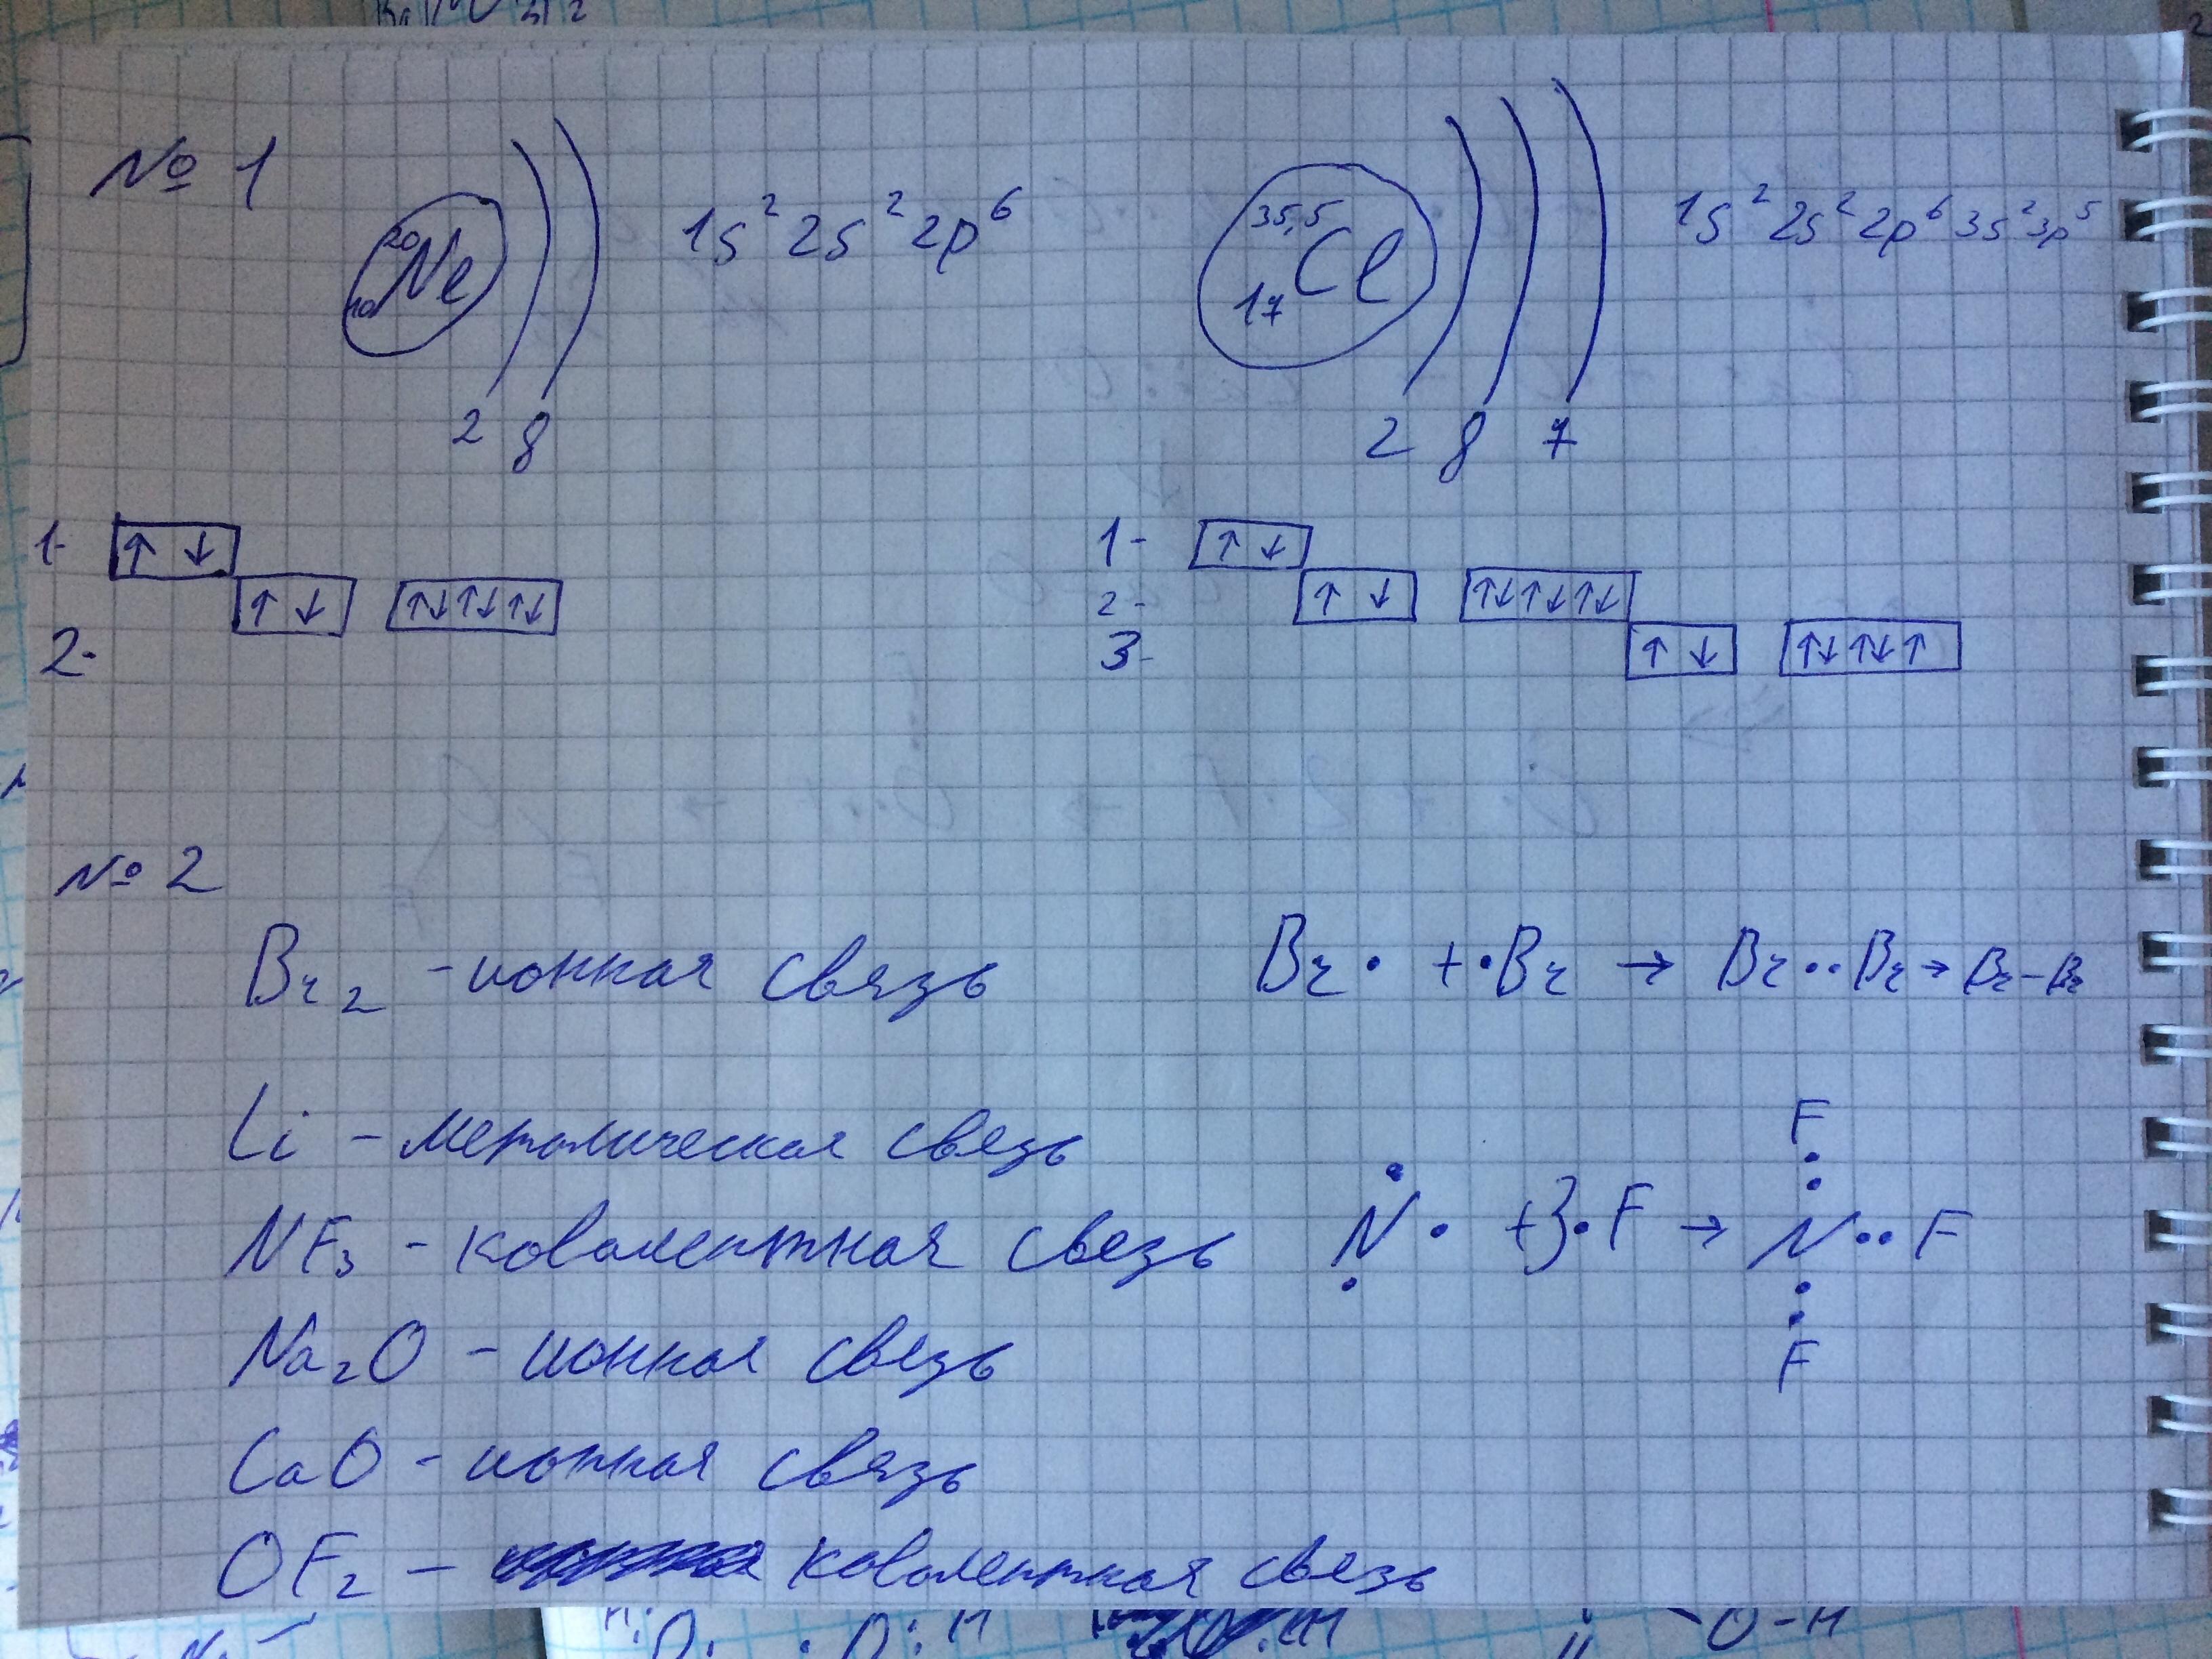 № 1
20 10 Ne 1s² 2s² 2p⁶ 35,5 17 Cl 1s² 2s² 2p⁶ 3s² 3p⁵
2 8 2 8 7
1- ↑ ↓ 1- ↑ ↓
↑ ↓ ↑↓↑↓↑↓ 2- ↑ ↓ ↑↓↑↓↑↓
2- 3- ↑ ↓ ↑↓↑↓↑
№ 2
Br₂ - ионная связь Br· + ·Br → Br··Br → Br–Br
Li – металическая связь
NF₃ - ковалентная связь N + 3·F → N··F
F
F
Na₂O - ионная связь
CaO - ионная связь
OF₂ - ковалентная связь
O-H